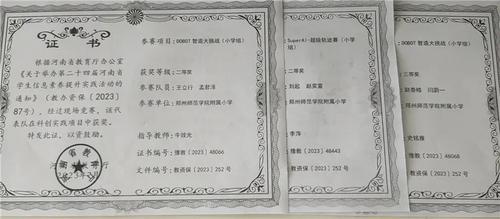 证 书
根据河南省教育厅办公室
《关于举办第二十四届河南省
学生信息素养提升实践活动的
通知》(教办资保〔2023〕
87号),经过现场竞赛,该代
表队在科创实践项目中获奖。
特发此证,以资鼓励。
参赛项目:DOBOT 智造大挑战(小学
组)
获奖等级:二等奖
参赛队员:王立行 孟君泽
参赛单位:郑州师范学院附属小学
指导教师:牛效允
证书编号:豫教〔2023〕48066
文件编号:教资保〔2023〕252 号
SuperAI-超级轨迹赛(小学
组)
二等奖
刘起 赵奕雷
郑州师范学院附属小学
李萍
豫教〔2023〕48443
教资保〔2023〕252 号
DOBOT 智造大挑战(小学
组)
二等奖
郑州师范学院附属小学
史铭雅
豫教〔2023〕48068
教资保〔2023〕252 号